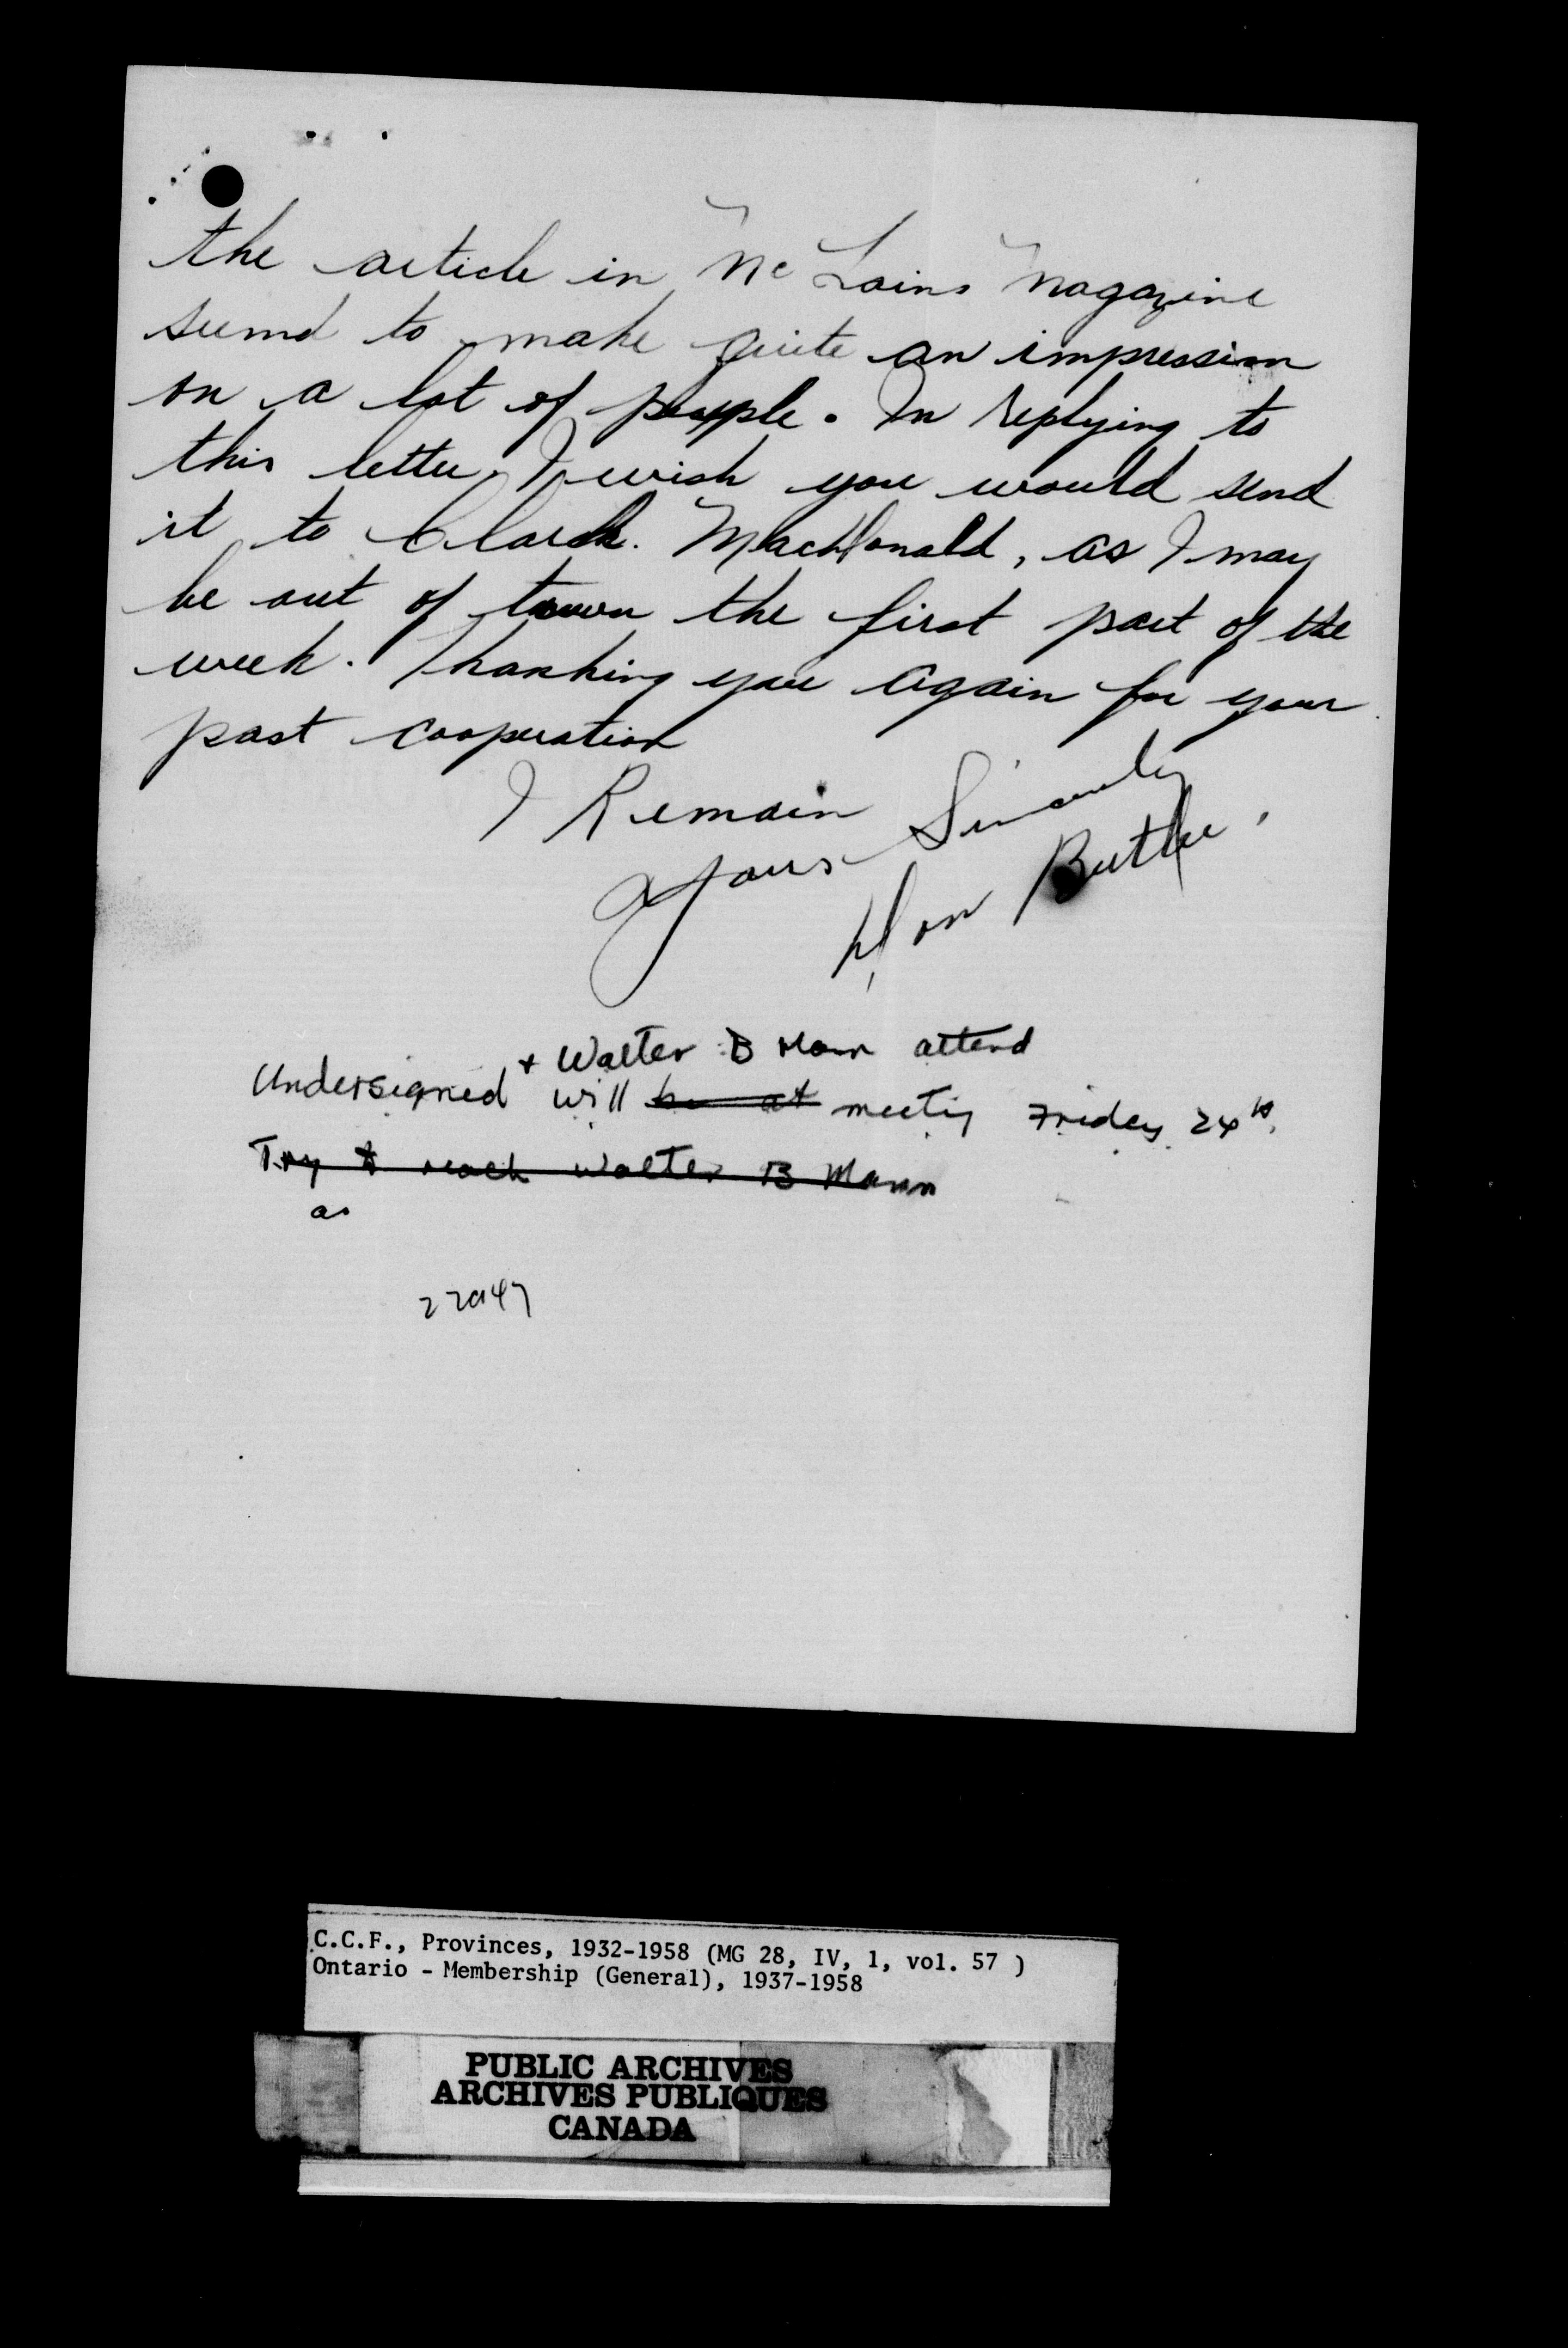 the article in McLains Magazine
seemd to make quite an impression
on a lot of people. In replying to
this letter I wish you would send
it to Clarck. MacDonald, as I may
be out of town the first part of the
week. Thanking you again for your
past cooperation
I Remain
Yours Sincerely
Don Butler.
+ Walter B Mann attend
Undersigned will be at meeting Friday 24th.
Try to reach Walter B Mann
as
C.C.F., Provinces, 1932-1958 (MG 28, IV, 1, vol. 57 )
Ontario - Membership (General), 1937-1958
PUBLIC ARCHIVES
ARCHIVES PUBLIQUES
CANADA